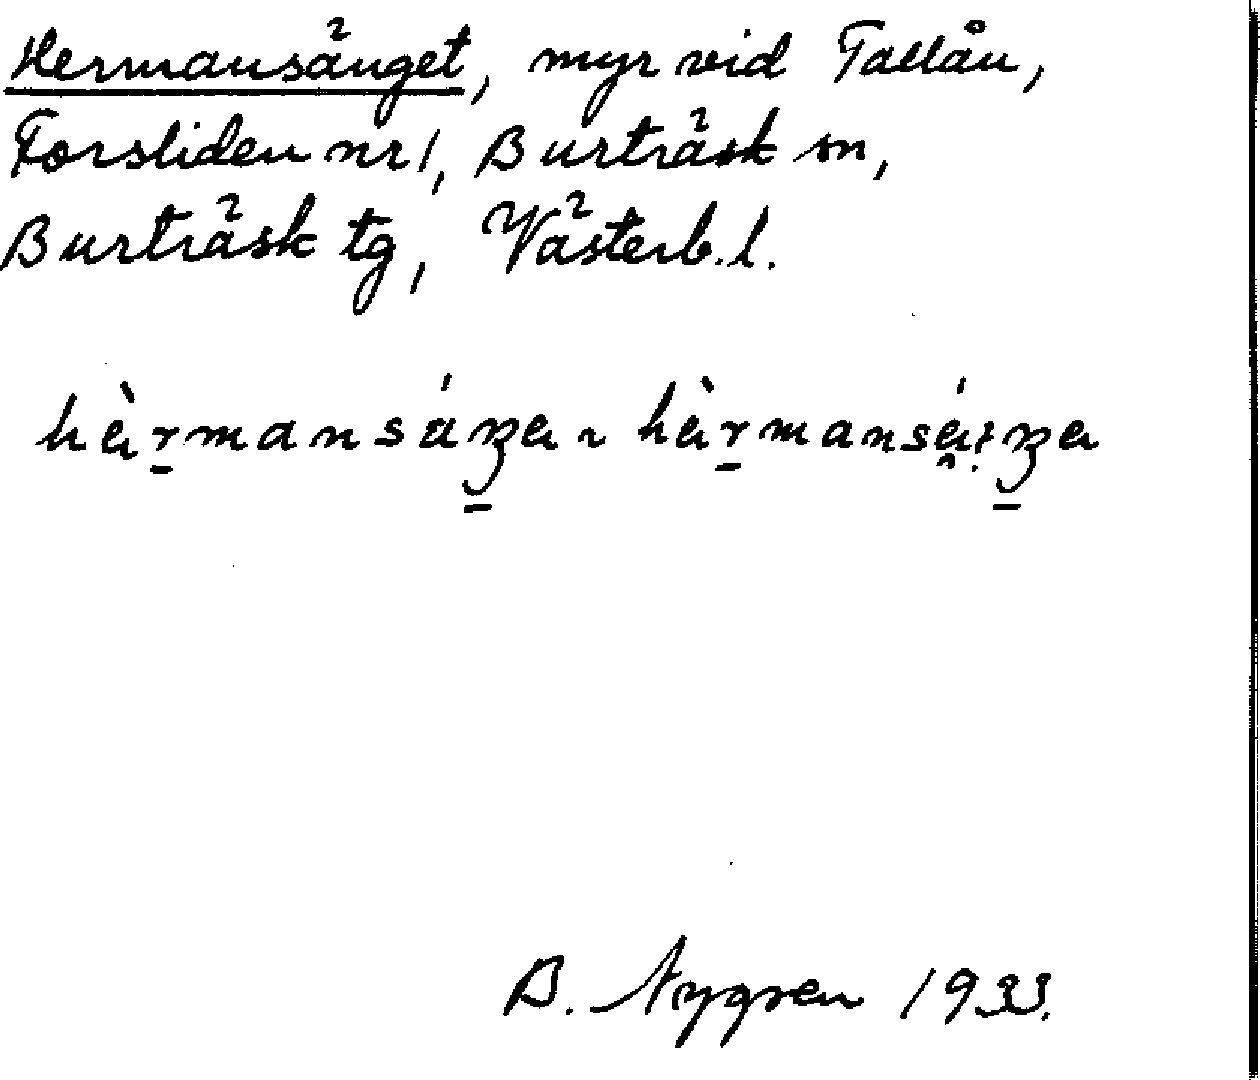 Hermansänget, myr vid Tallån,
Forsliden nr 1, Burträsk sn,
Burträsk tg, Västerb. l.
B. Nygren 1933.